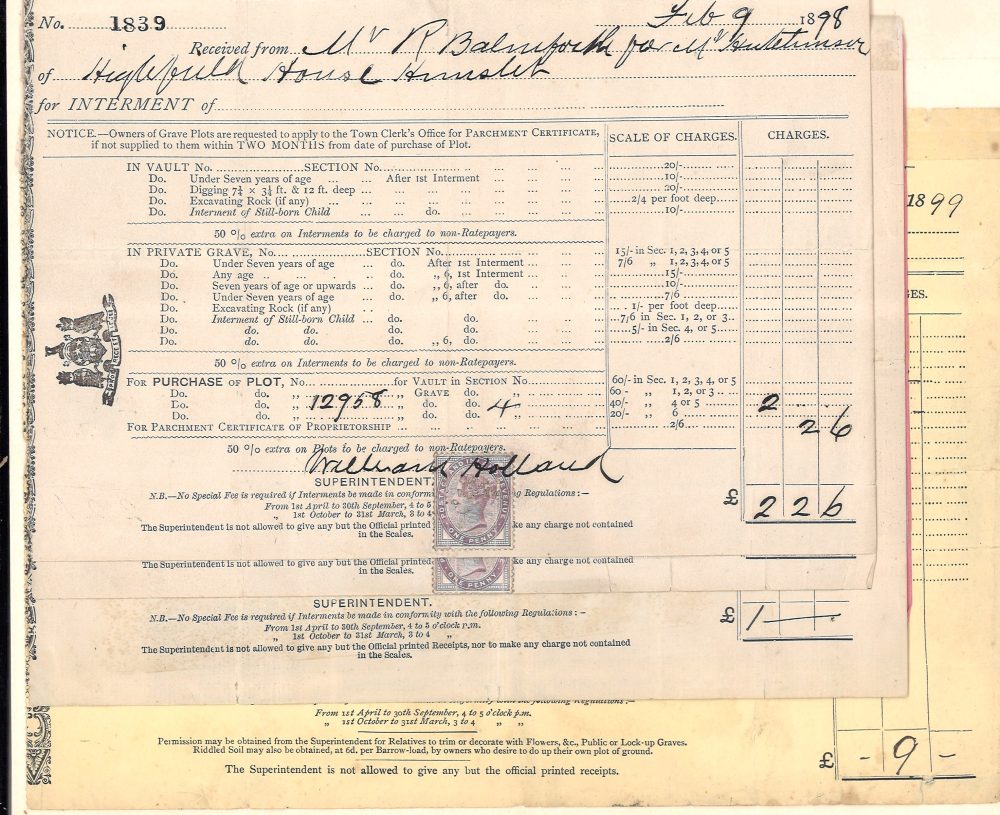 No. 1839 Feb 9 1898
Received from Mr R Balmforth for Mr Hutchinson
of Highfield House Hunslet
for INTERMENT of
NOTICE.—Owners of Grave Plots are requested to apply to the Town Clerk's Office for PARCHMENT CERTIFICATE, if not supplied to them within TWO MONTHS from date of purchase of Plot.
SCALE OF CHARGES. CHARGES.
IN VAULT No. SECTION No. 20/-
Do. Under Seven years of age ... ... After 1st Interment ... 10/-
Do. Digging 7¾ × 3¼ ft. & 12 ft. deep ... 20/-
Do. Excavating Rock (if any) ... 2/4 per foot deep
Do. Interment of Still-born Child ... do. ... 10/-
50 % extra on Interments to be charged to non-Ratepayers.
IN PRIVATE GRAVE, No. SECTION No. 15/- in Sec. 1, 2, 3, 4, or 5
Do. Under Seven years of age ... do. After 1st Interment ... 7/6 „ 1, 2, 3, 4, or 5
Do. Any age ... do. „ 6, 1st Interment ... 15/-
Do. Seven years of age or upwards ... do. „ 6, after do. 10/-
Do. Under Seven years of age ... do. „ 6, after do. 7/6
Do. Excavating Rock (if any) ... 1/- per foot deep
Do. Interment of Still-born Child ... do. do. 7/6 in Sec. 1, 2, or 3
Do. do. do. do. do. 5/- in Sec. 4, or 5
Do. do. do. do. „ 6, do. 2/6
50 % extra on Interments to be charged to non-Ratepayers.
FOR PURCHASE OF PLOT, No. for VAULT in SECTION No. 60/- in Sec. 1, 2, 3, 4, or 5
Do. do. „ „ GRAVE do. „ 60 - „ 1, 2, or 3
Do. do. „ 12958 „ do. do. 4 40/- „ 4 or 5 2
Do. do. „ „ do. do. „ 20/- „ 6
FOR PARCHMENT CERTIFICATE OF PROPRIETORSHIP 2/6 2 6
50 % extra on Plots to be charged to non-Ratepayers.
William Holland
SUPERINTENDENT.
N.B.—No Special Fee is required if Interments be made in conform Regulations:—
From 1st April to 30th September, 4 to 5
„ 1st October to 31st March, 3 to 4
£ 2 2 6
The Superintendent is not allowed to give any but the Official printed ke any charge not contained
in the Scales.
ONE PENNY
The Superintendent is not allowed to give any but the Official printed ke any charge not contained
in the Scales.
ONE PENNY
SUPERINTENDENT.
N.B.—No Special Fee is required if Interments be made in conformity with the following Regulations:—
From 1st April to 30th September, 4 to 5 o'clock p.m.
„ 1st October to 31st March, 3 to 4 „
£ 1 -
The Superintendent is not allowed to give any but the Official printed Receipts, nor to make any charge not contained
in the Scales.
1899
GES.
From 1st April to 30th September, 4 to 5 o'clock p.m.
„ 1st October to 31st March, 3 to 4 „ „
Permission may be obtained from the Superintendent for Relatives to trim or decorate with Flowers, &c., Public or Lock-up Graves.
Riddled Soil may also be obtained, at 6d. per Barrow-load, by owners who desire to do up their own plot of ground.
£ - 9 -
The Superintendent is not allowed to give any but the official printed receipts.